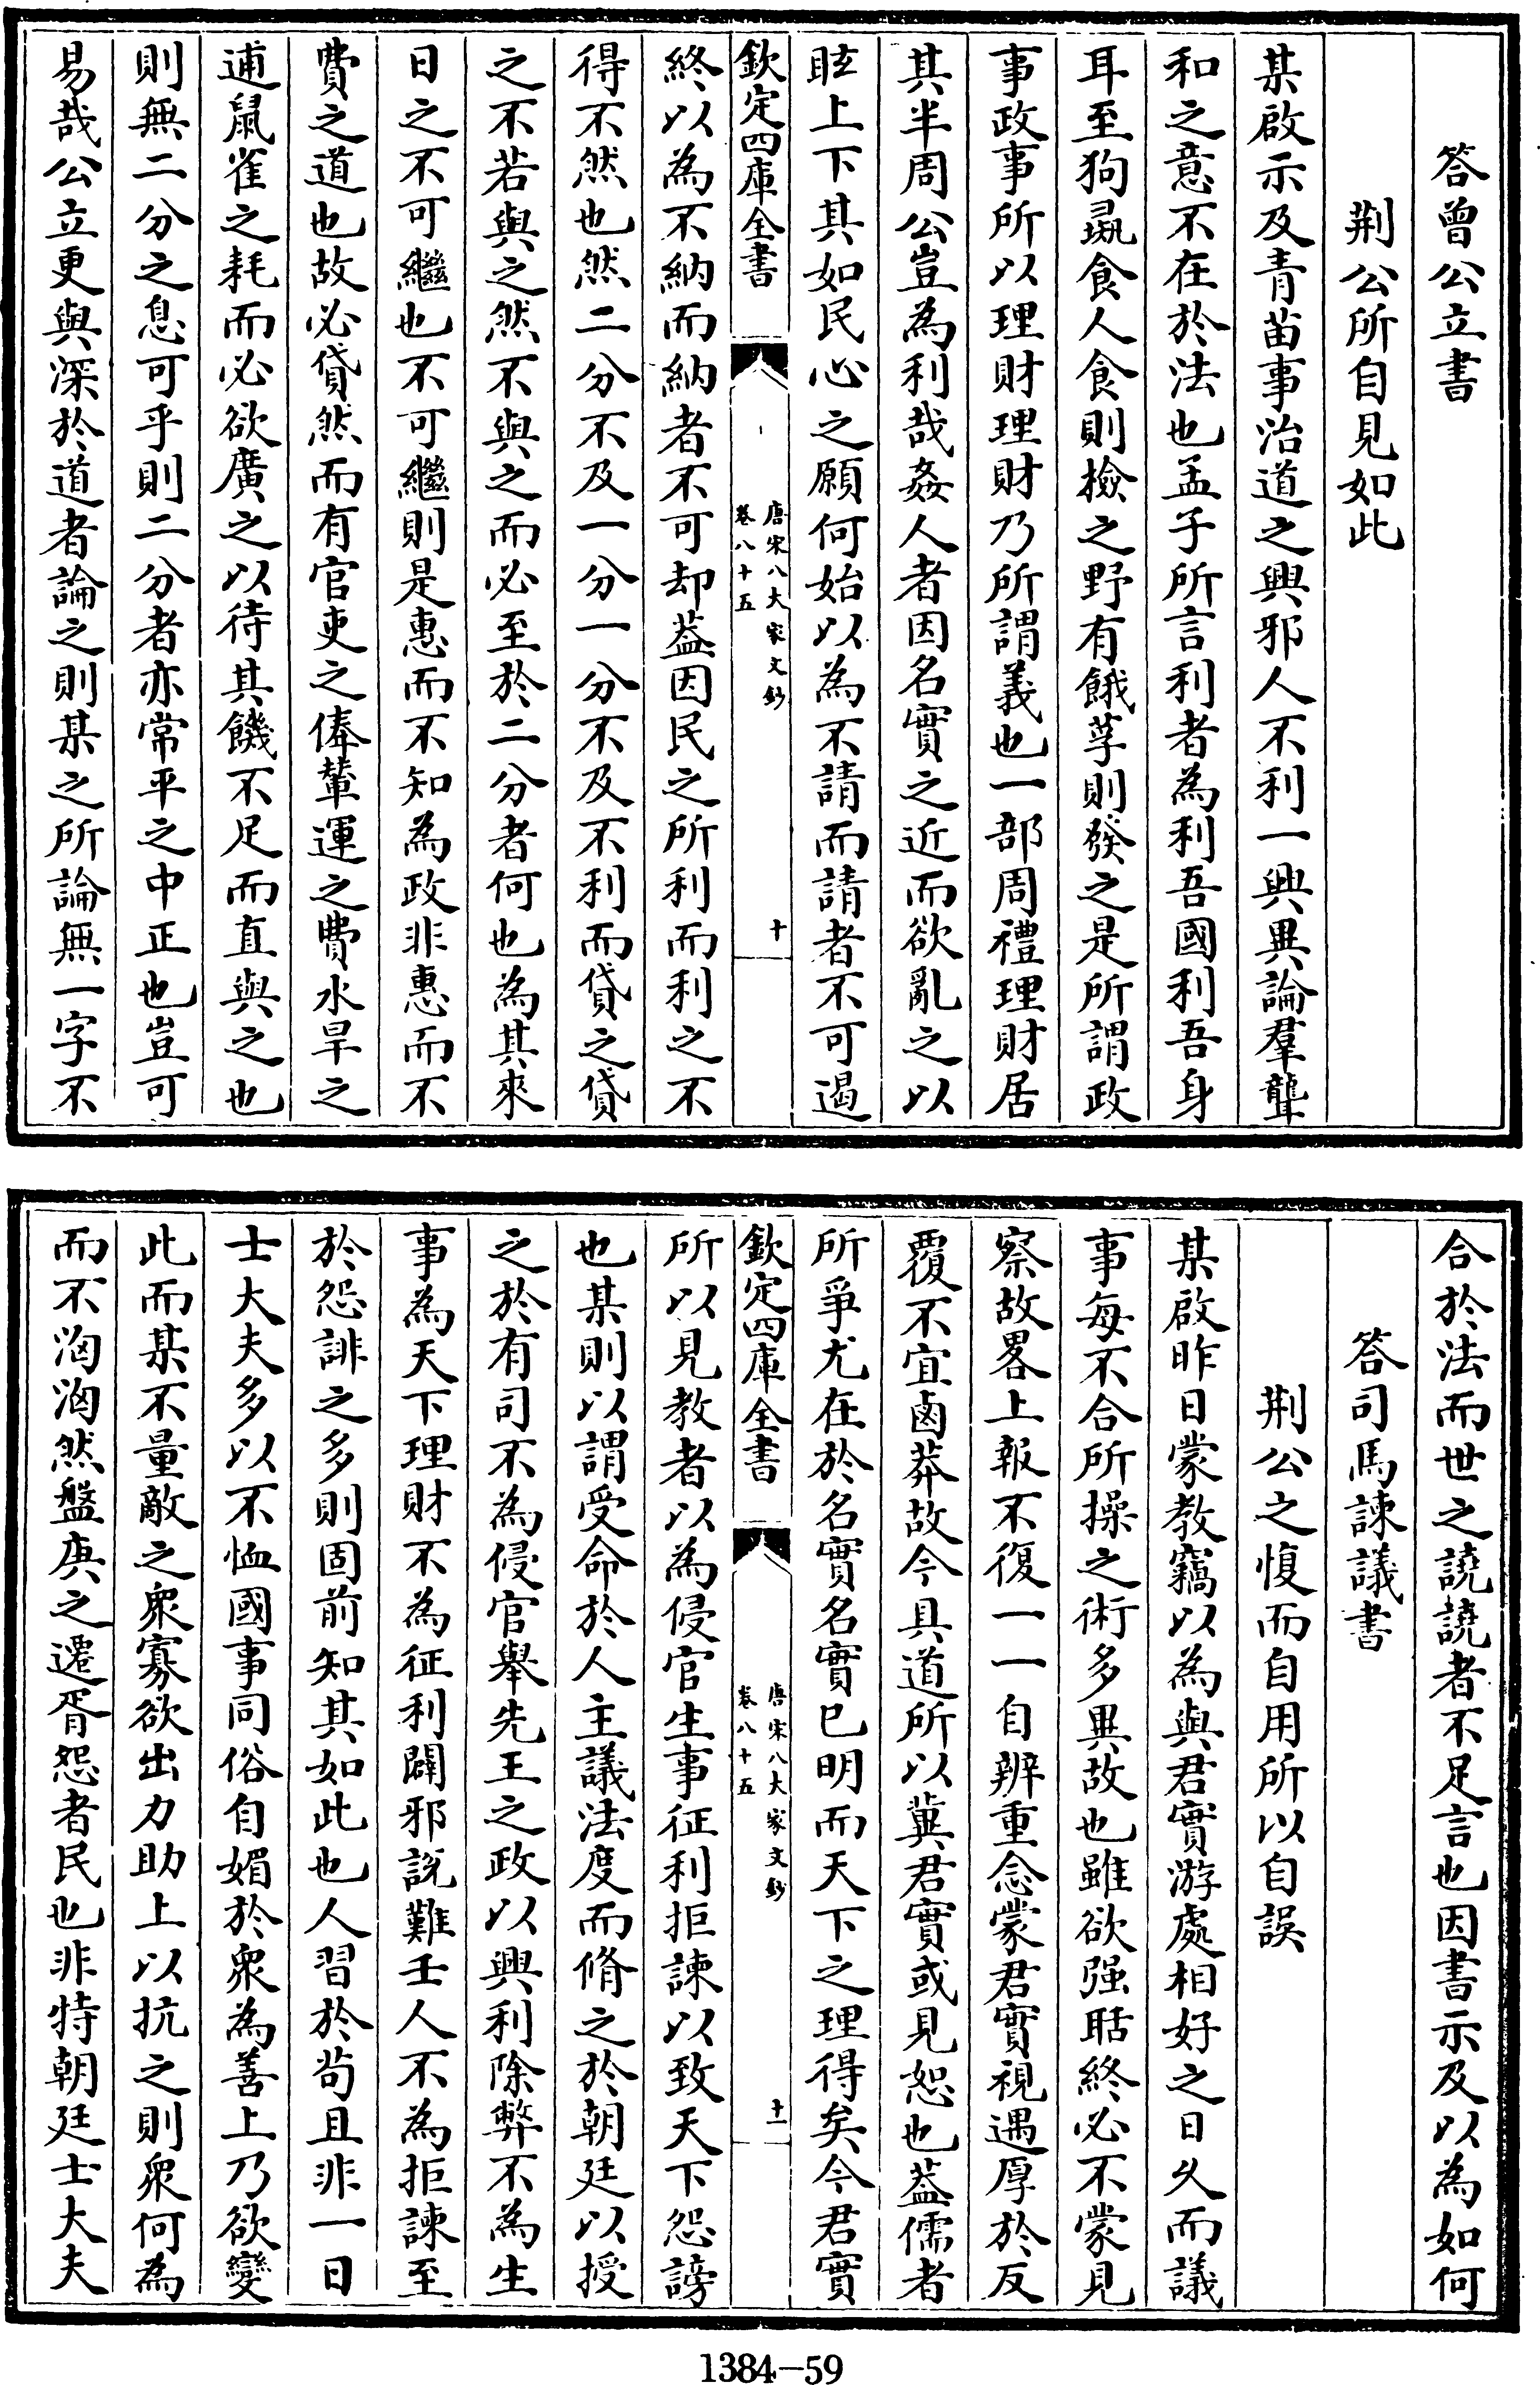 答曾公立書
荆公所自見如此
某啟示及青苗事治道之興邪人不利一興異論羣聾
和之意不在於法也孟子所言利者為利吾國利吾身
耳至狗彘食人食則檢之野有餓莩則發之是所謂政
事政事所以理財理財乃所謂義也一部周禮理財居
其半周公豈為利哉姦人者因名實之近而欲亂之以
眩上下其如民心之願何始以為不請而請者不可遏
欽定四庫全書
唐宋八大家文鈔
卷八十五
十
終以為不納而納者不可却葢因民之所利而利之不
得不然也然二分不及一分一分不及不利而貸之貸
之不若與之然不與之而必至於二分者何也為其來
日之不可繼也不可繼則是惠而不知為政非惠而不
費之道也故必貸然而有官吏之俸輦運之費水旱之
逋鼠雀之耗而必欲廣之以待其饑不足而直與之也
則無二分之息可乎則二分者亦常平之中正也豈可
易哉公立更與深於道者論之則某之所論無一字不
合於法而世之譊譊者不足言也因書示及以為如何
答司馬諫議書
荆公之愎而自用所以自誤
某啟昨日蒙教竊以為與君實游處相好之日久而議
事每不合所操之術多異故也雖欲强聒終必不蒙見
察故畧上報不復一一自辨重念蒙君實視遇厚於反
覆不宜鹵莽故今具道所以冀君實或見恕也葢儒者
所爭尤在於名實名實已明而天下之理得矣今君實
欽定四庫全書
唐宋八大家文鈔
卷八十五
十一
所以見教者以為侵官生事征利拒諫以致天下怨謗
也某則以謂受命於人主議法度而脩之於朝廷以授
之於有司不為侵官舉先王之政以興利除弊不為生
事為天下理財不為征利闢邪說難壬人不為拒諫至
於怨誹之多則固前知其如此也人習於茍且非一日
士大夫多以不恤國事同俗自媚於衆為善上乃欲變
此而某不量敵之衆寡欲出力助上以抗之則衆何為
而不洶洶然盤庚之遷胥怨者民也非特朝廷士大夫
1384-59